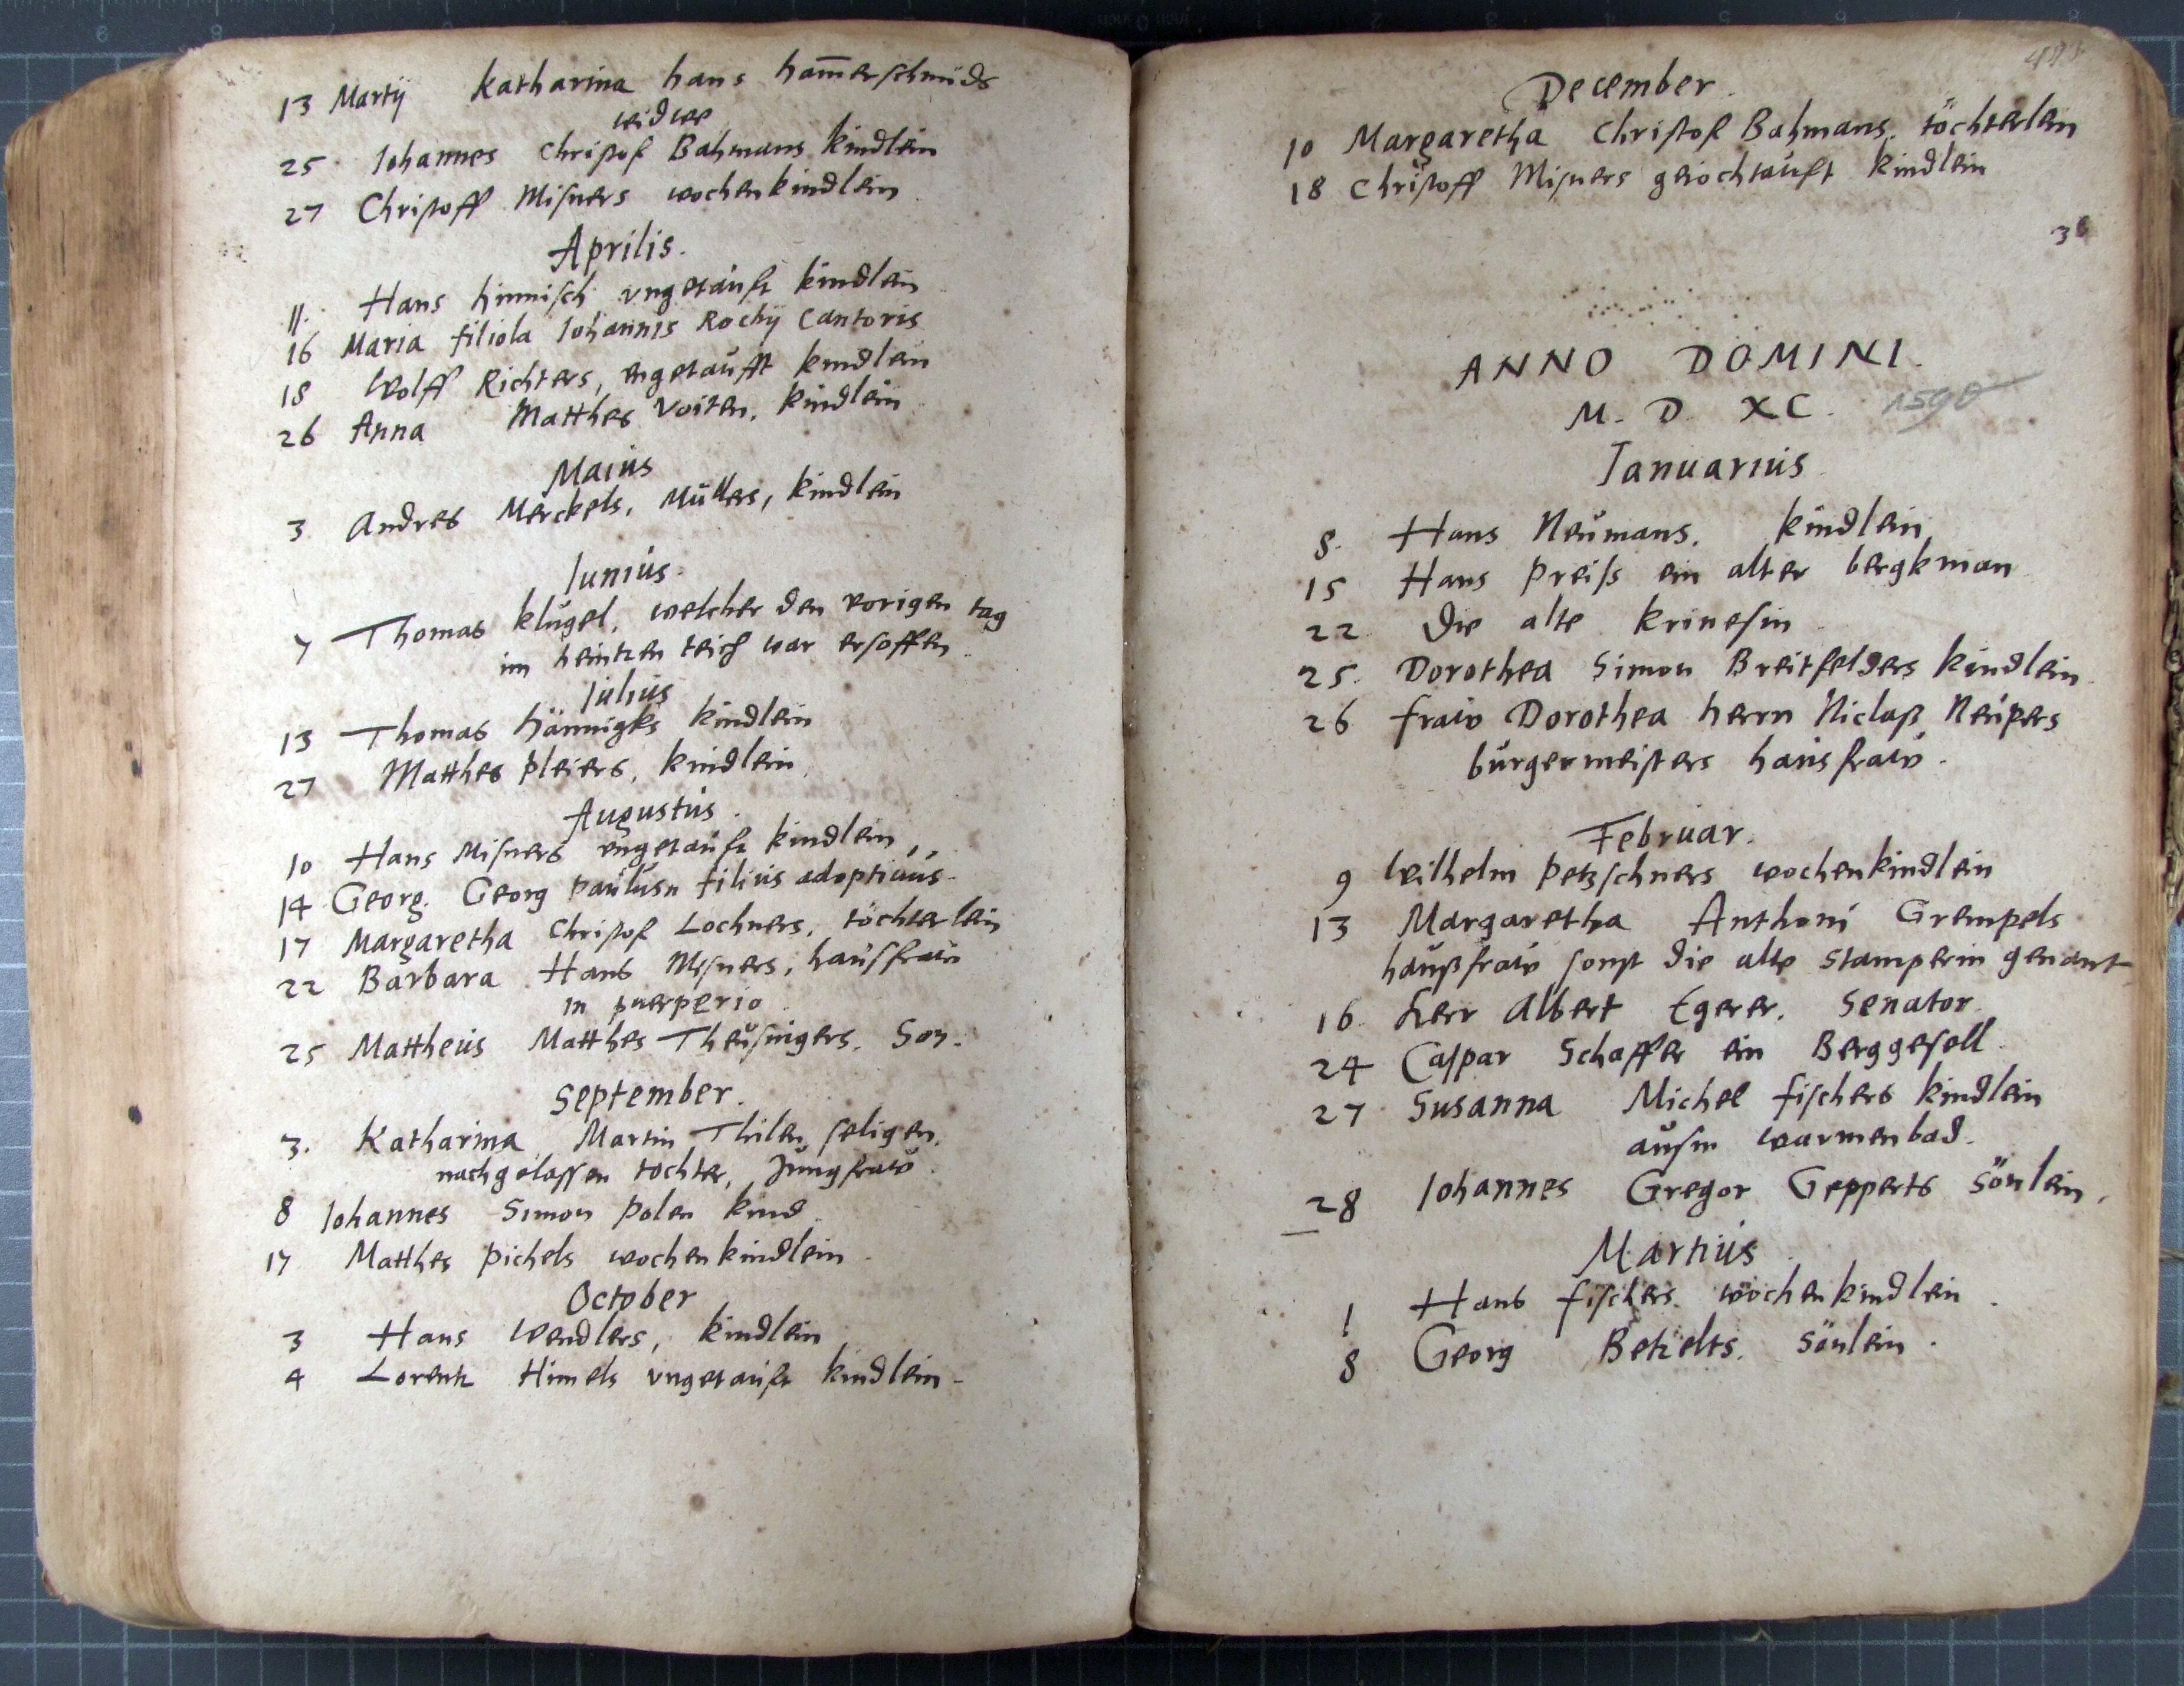 13 Martij Katharina hans ham̄erschmids
widwe
25 Iohannes Christof Bahmans kindlein
27 Christoff Misners wochenkindlein
Aprilis.
11. Hans himisch vngetaufft kindlein
16 Maria filiola Iohannis Rochij Cantoris
18 Wolff Richters, vngetaufft kindlein
26 Anna Matthes Voiten, kindlein
Maius
3 Andres Merckels, Müllers, kindlein
Iunius.
7 Thomas klügel, welcher den vorigen tag
im heintzen teich war ersoffen
Iulius
13 Thomas hännigks kindlein
27 Matthes pleiers, kindlein
Augustus.
10 Hans Misners vngetaufft kindlein
14 Georg. Georg paulusn filius adoptiuus
17 Margaretha Christof Lochners, töchterlein
22 Barbara Hans Misners, hausfraw
in puerperio
25 Mattheus Matthes Theusingers. Son.
September.
3. Katharina Martin Thilen seligen,
nachgelassen tochter, Jungfraw.
8 Iohannes Simon polen kind
17 Matthes pichels wochenkindlein
October
3 Hans Wendlers, kindlein
4 Lorentz Himels vngetaufft kindlein
December.
10 Margaretha Christof Bahmans, töchterlein
18 Christoff Misners kindlein
ANNO DOMINI.
M. D. XC. 1590
Ianuarius
8. Hans Neumans, kindlein
15 Hans preiss ein alter bergkman
22 Die alte krinesin
25. Dorothea Simon Breitfelders kindlein
26 fraw Dorothea herrn Niclaß Neupers
burgermeisters hausfraw.
Februar.
9 Wilhelm petzschners wochenkindlein
13 Margaretha Anthoni Grempels
haußfraw sonst die alte stamperin genant
16 Herr Albert Egerer, Senator
24 Caspar Schaffer ein Berggesell
27 Susanna Michel fischers kindlein
ausm warmenbad.
28 Iohannes Gregor Gepperts sönlein,
Martius
1 Hans fischers wochenkindlein
8 Georg Betzelts. sönlein.